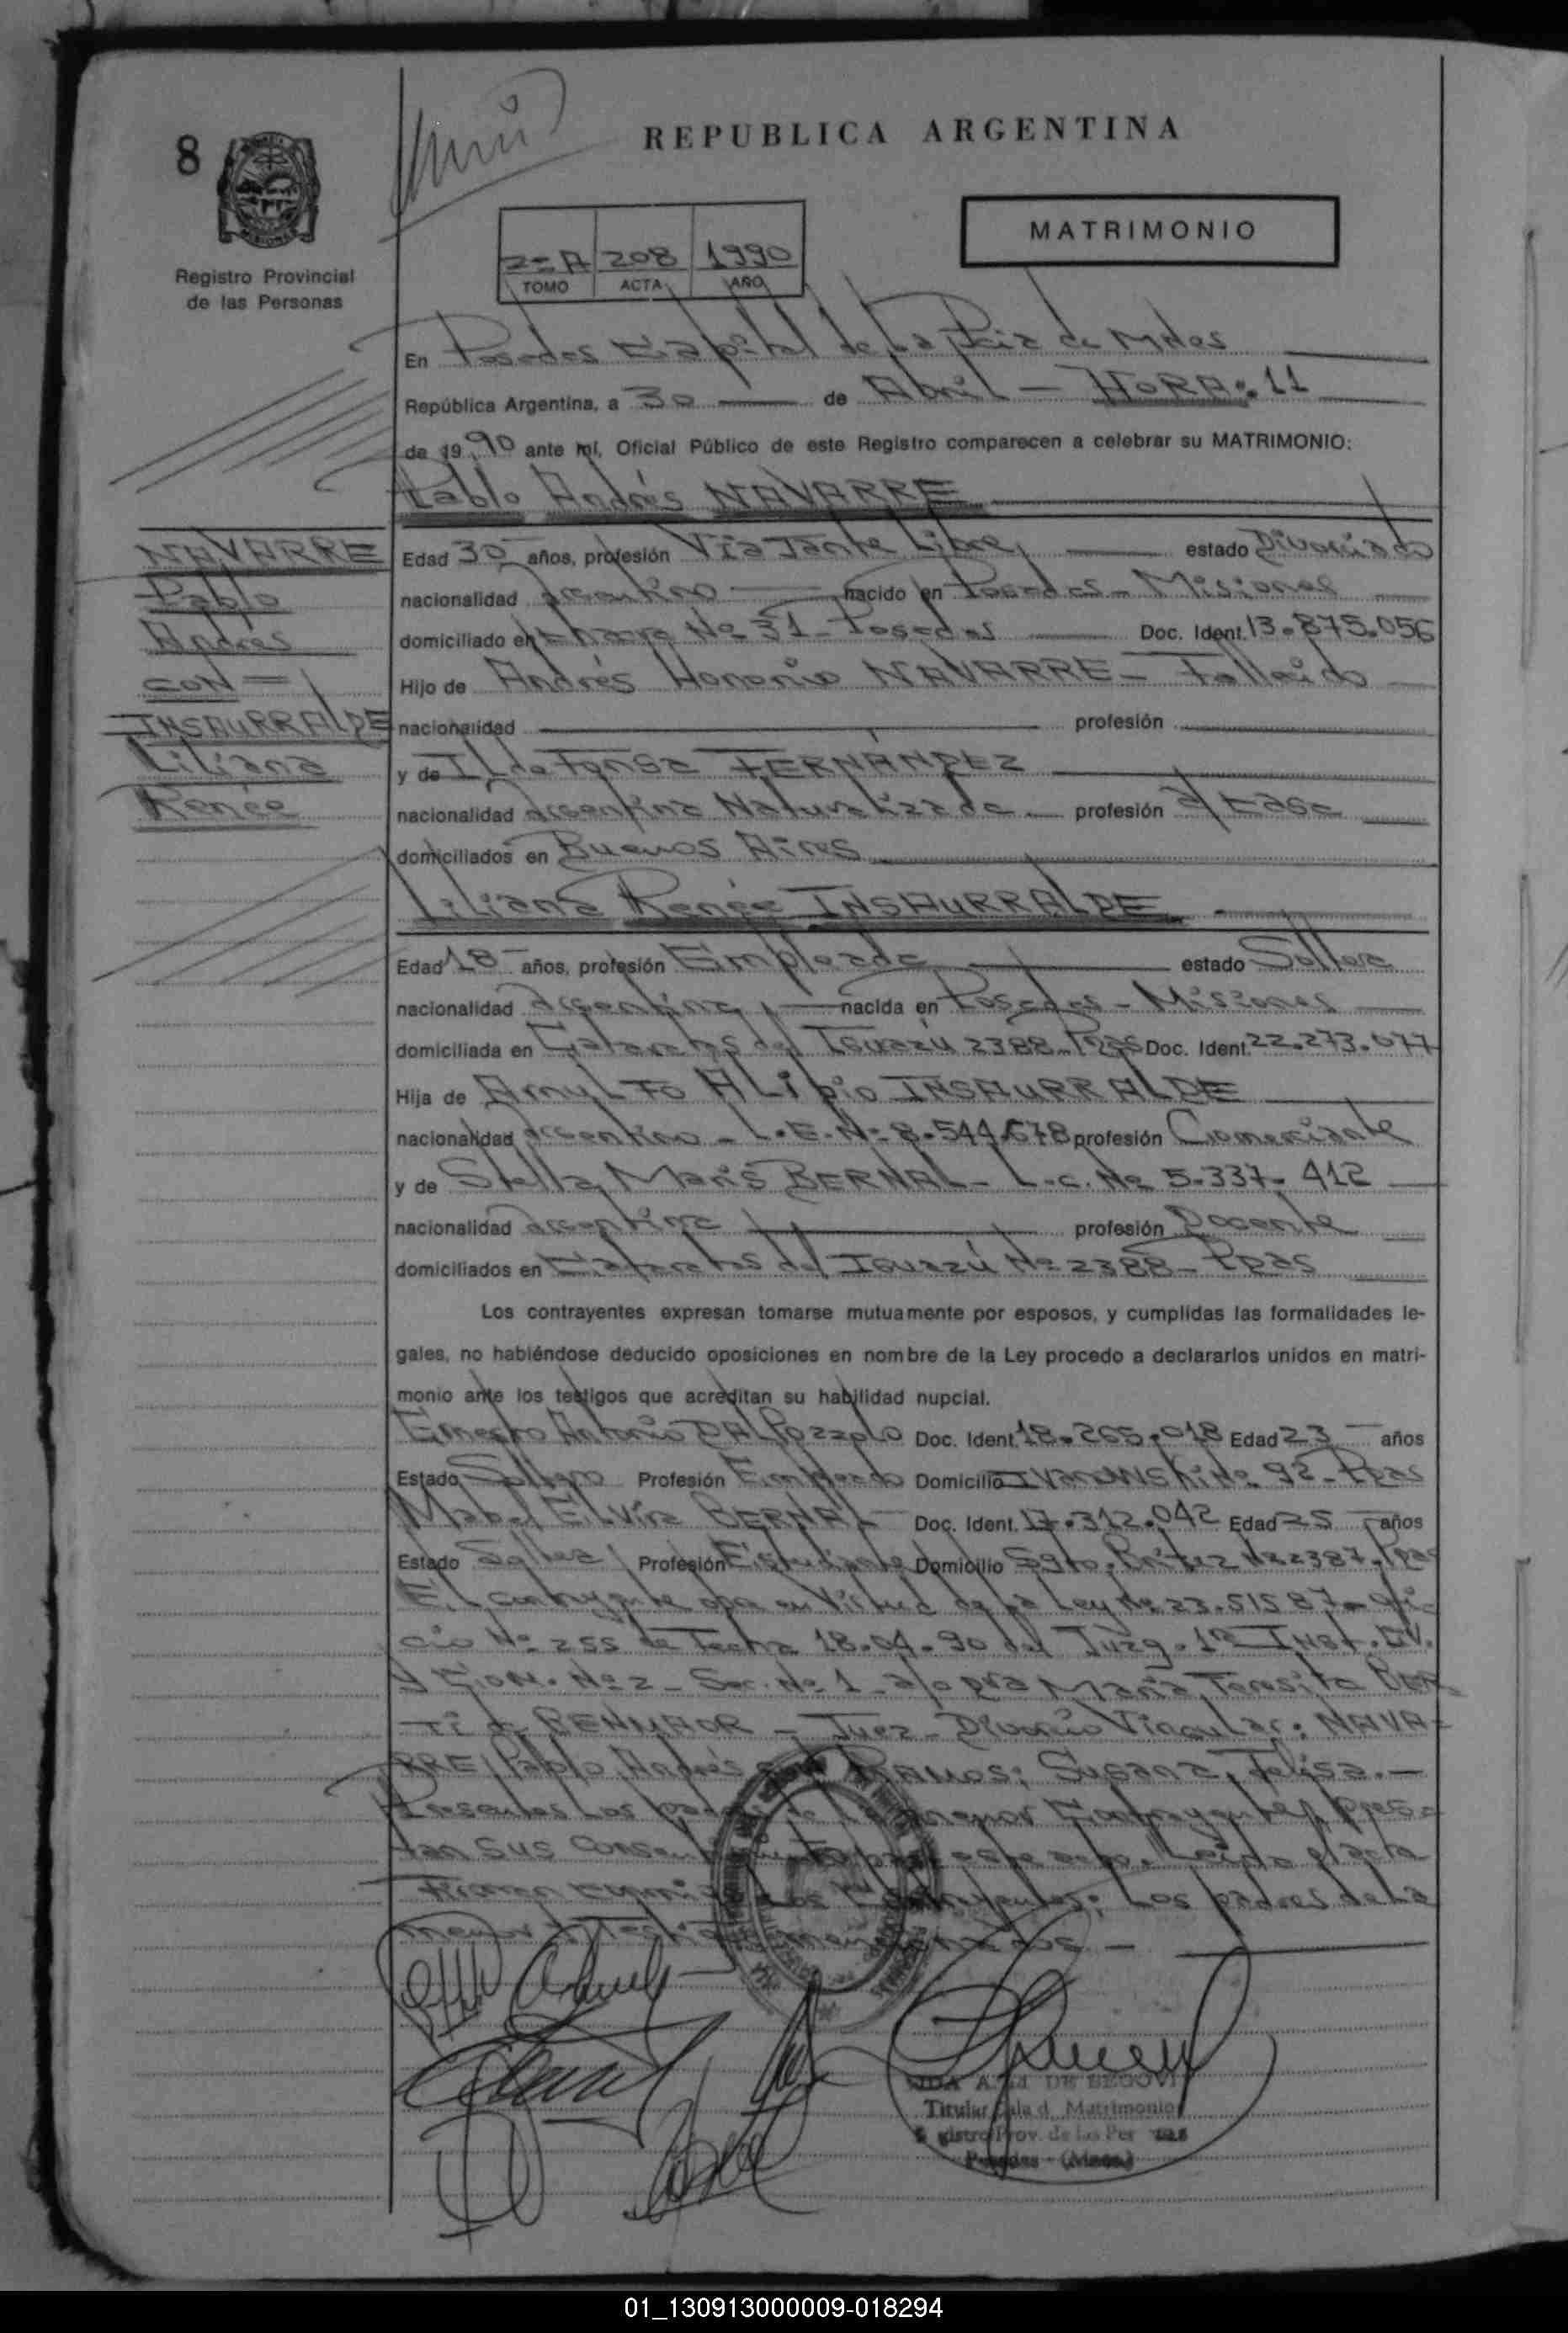 8
REPUBLICA ARGENTINA
MATRIMONIO
Registro Provincial
de las Personas
2=A 208 1990
TOMO ACTA AÑO
En Posadas Capital de la Pcia de Mnes
República Argentina, a 30 de Abril - HORA: 11
de 1990 ante mí, Oficial Público de este Registro comparecen a celebrar su MATRIMONIO:
Pablo Andrés NAVARRE
NAVARRE
Pablo
Andrés
CON=
INSAURRALDE
Liliana
Renée
Edad 30 años, profesión Viajante Libre, estado Divorciado
nacionalidad argentino nacido en Posadas - Misiones
domiciliado en Chacra No 31 - Posadas Doc. Ident. 13.875.056
Hijo de Andrés Honorio NAVARRE - Fallecido
nacionalidad profesión
y de Ildefonsa FERNÁNDEZ
nacionalidad argentina Naturalizada profesión a/ casa
domiciliados en Buenos Aires
Liliana Renée INSAURRALDE
Edad 18 años, profesión Empleada estado Soltera
nacionalidad argentina, nacida en Posadas - Misiones
domiciliada en Cataratas del Iguazú 2388 - Pdas Doc. Ident. 22.273.077
Hija de Arnulfo Alipio INSAURRALDE
nacionalidad argentino - L.E. No 8.544.678 profesión Comerciante
y de Stella Maris BERNAL - L.C. No 5.337.412
nacionalidad argentina profesión Docente
domiciliados en Cataratas del Iguazú No 2388 - Pdas
Los contrayentes expresan tomarse mutuamente por esposos, y cumplidas las formalidades le-
gales, no habiéndose deducido oposiciones en nombre de la Ley procedo a declararlos unidos en matri-
monio ante los testigos que acreditan su habilidad nupcial.
Ernesto Antonio DALPozzolo Doc. Ident. 18.265.018 Edad 23 años
Estado Soltero Profesión Empleado Domicilio Ivanowski No 92 - Pdas
Mabel Elvira BERNAL Doc. Ident. 17.312.042 Edad 25 años
Estado Soltera Profesión Estudiante Domicilio Sgto. No 2387 - Pdas
El contrayente en Virtud de la Ley No 23.515 87 - Ofi-
cio No 255 de fecha 18-04-90 del Juzg. 1ra Inst. CV.
y Com. No 2 - Sec. No 1 a/c Dra María Teresita
de - Juez - Divorcio Vincular: NAVA-
RRE, Pablo Andrés RAMOS, Susana Felisa. -
Presentes los padres de la menor Contrayente, pres-
tan sus consentimiento para este acto. Leída el acta
firman los Contrayentes; Los padres de la
menor y testigos mencionados -
DE SEGOVI
Titular Sala d Matrimonio
gistro Prov. de las Per
Posadas - (Mnes.)
01_130913000009-018294